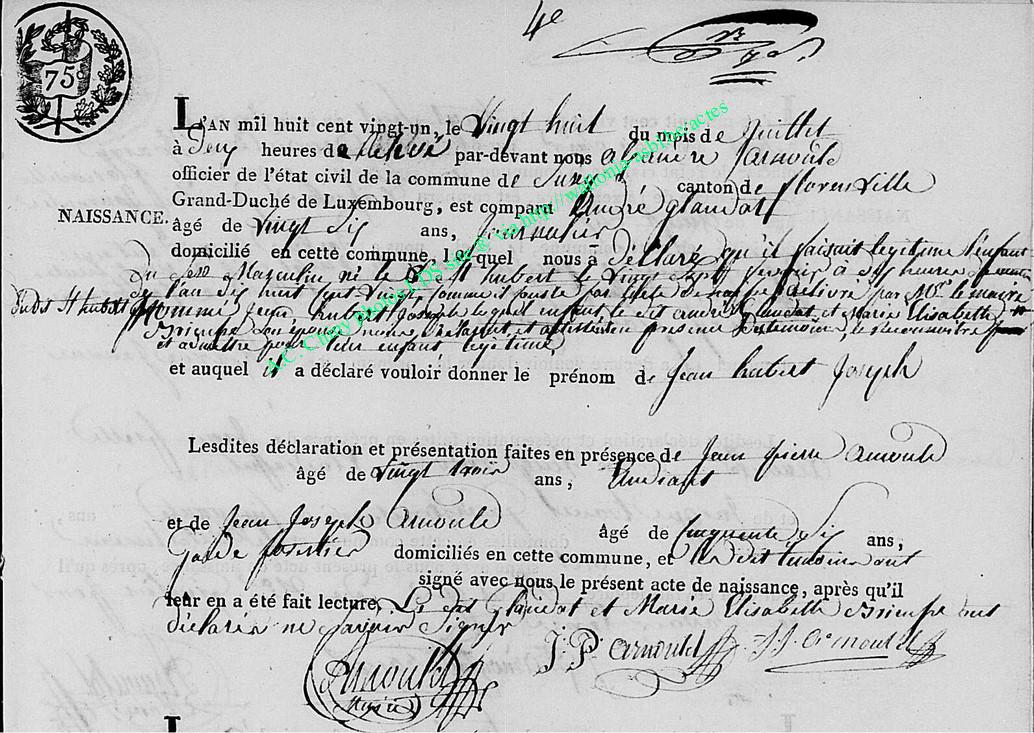 4e
75c
L'AN mil huit cent vingt-un, le Vingt huit du mois de Juillet
à heures de par-devant nous Arnould
officier de l'état civil de la commune de canton de florenville
Grand-Duché de Luxembourg, est comparu André glaudat
NAISSANCE.
âgé de Vingt Six ans, journalier
domicilié en cette commune, lequel nous a Déclaré qu'il faisait legitime l'enfant
Du Sexe Masculin né le à St hubert le Vingt Sept fevrier à heures
de l'an huit cent Vingt comme il delivré par Mr le maire
dudit St hubert
Nommé Jean hubert Joseph lequel enfant le dit andré Glaudat et Marie Elisabeth
Brimpe Son épouse presence temoins le Reconnoître
et admettre pour leur enfant legitime
et auquel il a déclaré vouloir donner le prénom de Jean hubert Joseph
Lesdites déclaration et présentation faites en présence de Jean pierre arnould
âgé de vingt trois ans, Etudiant
et de Jean Joseph Arnould âgé de Cinquante Six ans,
Garde forestier domiciliés en cette commune, et Les dit temoins ont
signé avec nous le présent acte de naissance, après qu'il
leur en a été fait lecture, Le dit Glaudat et Marie Elisabette Brimpe ont
déclarés ne Savoir Signer
Arnould
J: P: arnould
J. J. Arnould
A.C. Chiny Photos FDS sur ® via http://wallonia-asbl.be/actes